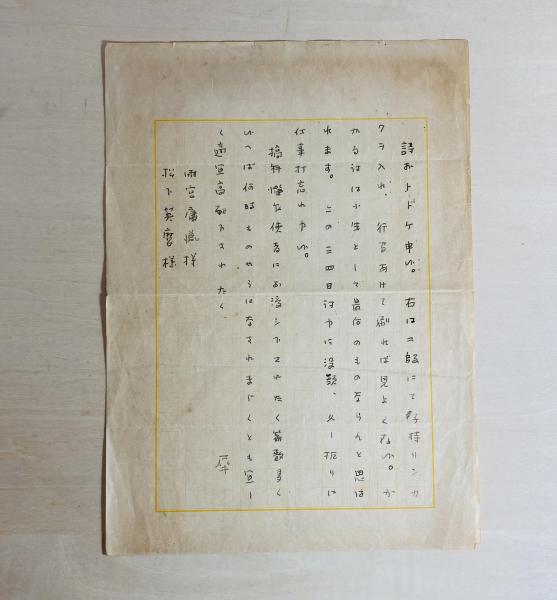 詩お トドケ申い。右は二段にて子持リンカ
クヲ入れ、行るあけて刷れば見よくない。か
かる詩は小生として最后のものならんと思は
れます。この三四日 詩作に没頭、久し振りに
仕事打忘れ申い。
稿料 憚乍使者にお渡シ下されたく 篇数多く
いへば何時ものやうになされまじくとも宜し
く適宜高配下されたく
犀
雨宮庸蔵様
松下英麿様